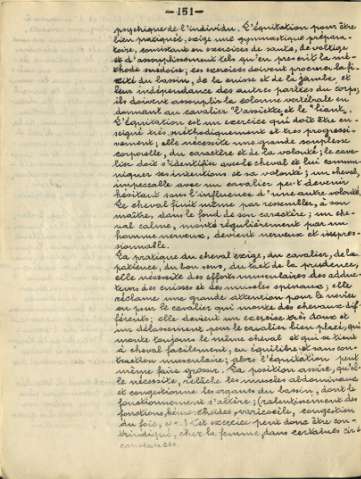 - 151 -
psychique de l'individu. L'équitation pour être
bien pratiquée, exige une gymnastique prépara-
toire, consistant en exercices de sauts, de voltige
et d'assouplissement tels qu'en prescrit la mé-
thode suédoise; ces exercices doivent procurer la fi-
xité du bassin, de la cuisse et de la jambe et
leur indépendance des autres parties du corps;
ils doivent assouplir la colonne vertébrale en
donnant au cavalier l'assiette et le "liant.
L'équitation est un exercice qui doit être en-
seigné très méthodiquement et très progressi-
vement; elle nécessite une grande souplesse
corporelle, du caractère et de la volonté; le cava-
lier doit s'identifier avec le cheval et lui commu-
niquer ses intentions et sa volonté; un cheval,
impeccable avec un cavalier peut devenir
hésitant sous l'influence d'une autre volonté.
Le cheval finit même par ressembler, à son
maître, dans le fond de son caractère; un che-
val calme, monté régulièrement par un
homme nerveux, devient nerveux et impres-
sionnable.
La pratique du cheval exige, du cavalier, de la
patience, du bon sens, du tact de la prudence,
elle nécessite des efforts musculaires des adduc-
teurs des cuisses et des muscles spinaux; elle
réclame une grande attention pour le novice
ou pour le cavalier qui monte des chevaux dif-
férents; elle devient un exercice très doux et
un délassement pour le cavalier bien placé, qui
monte toujours le même cheval et qui se tient
à cheval facilement, en équilibre et sans con-
traction musculaire; alors l'équitation peut
même faire grossir. La position assise, qu'el-
le nécessite, relâche les muscles abdominaux
et congestionne les organes du bassin, dont le
fonctionnement s'altère; (ralentissement des
fonctions, hémorrhoïdes, varicocèle, congestion
du foie, etc.) Cet exercice peut donc être con-
trindiqué, chez la femme, dans certaines cir-
constances.